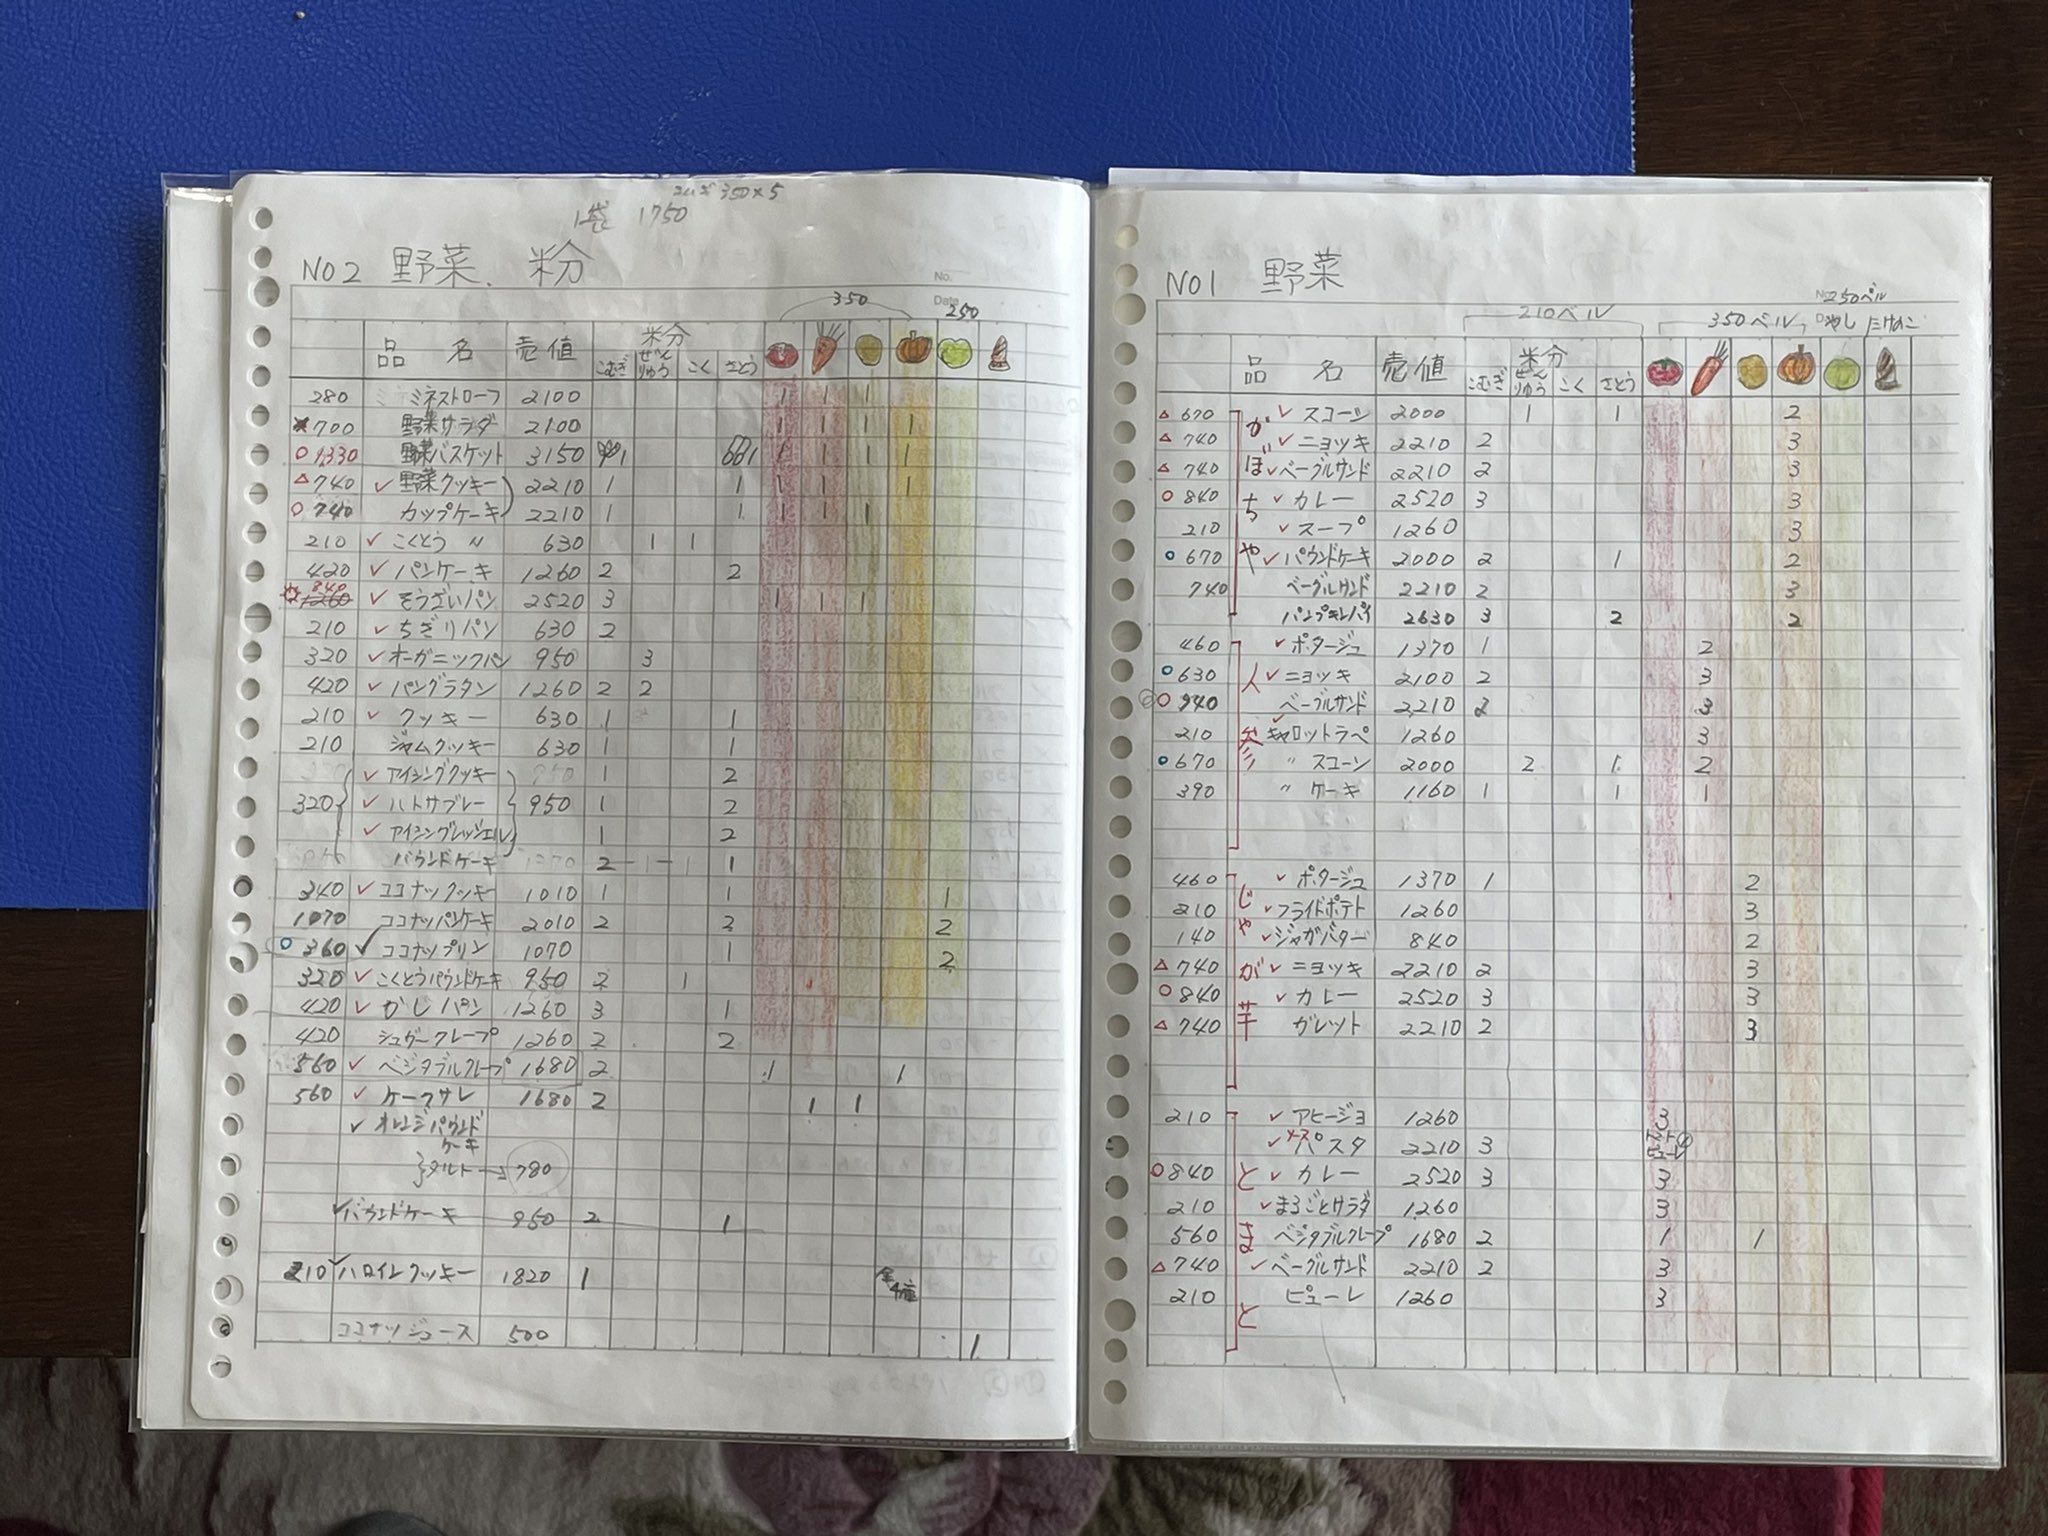 こむぎ 350×5
1袋 1750
NO2 野菜、粉
No.
Date
350 250
品名 売値 粉 こむぎ ぜんりゅう こく さとう
280 ミネストローフ 2100 1 1 1
700 野菜サラダ 2100 1 1 1 1
○ 1330 野菜バスケット 3150 1 1 1 1 1 1
△ 740 ✓ 野菜クッキー 2210 1 1 1 1 1
○ 740 カップケーキ 2210 1 1 1 1 1
210 ✓ こくとう 〃 630 1 1
420 ✓ パンケーキ 1260 2 2
840 1260 ✓ そうざいパン 2520 3 1 1 1
210 ✓ ちぎりパン 630 2
320 ✓ オーガニックパン 950 3
420 ✓ パングラタン 1260 2 2
210 ✓ クッキー 630 1 1
210 ジャムクッキー 630 1 1
✓ アイシングクッキー 950 1 2
320 ✓ ハトサブレー 950 1 2
✓ アイシングレッジェル 1 2
パウンドケーキ 1370 2 1 1 1
340 ✓ ココナックッキー 1010 1 1 1
1070 ココナッパンケーキ 2010 2 2 2
○ 360 ✓ ココナップリン 1070 1 2
320 ✓ こくとうパウンドケーキ 950 2 1
420 ✓ かしパン 1260 3 1
420 シュガークレープ 1260 2 2
560 ✓ ベジタブルクレープ 1680 2 1 1
560 ✓ ケークサレ 1680 2 1 1
✓ オレンジパウンド
ケーキ
タルト 780
✓ パウンドケーキ 950 2 1
210 ✓ ハロインクッキー 1820 1 全4種
ココナツジュース 500 1
NO1 野菜
250ベル
210ベル 350ベル やし たけのこ
品名 売値 粉 こむぎ ぜんりゅう こく さとう
かぼちゃ
△ 670 ✓ スコーン 2000 1 1 2
△ 740 ✓ ニョッキ 2210 2 3
△ 740 ✓ ベーグルサンド 2210 2 3
○ 840 ✓ カレー 2520 3 3
210 ✓ スープ 1260 3
○ 670 ✓ パウンドケーキ 2000 2 1 2
740 ベーグルサンド 2210 2 3
パンプキンパイ 2630 3 2 2
人参
460 ✓ ポタージュ 1370 1 2
○ 630 ✓ ニョッキ 2100 2 3
○ 940 ベーグルサンド 2210 2 3
210 ✓ キャロットラペ 1260 3
○ 670 〃 スコーン 2000 2 1 2
390 〃 ケーキ 1160 1 1 1
じゃが芋
460 ✓ ポタージュ 1370 1 2
210 ✓ フライドポテト 1260 3
140 ✓ ジャガバター 840 2
△ 740 ✓ ニョッキ 2210 2 3
○ 840 ✓ カレー 2520 3 3
△ 740 ガレット 2210 2 3
とまと
210 ✓ アヒージョ 1260 3
✓ パスタ 2210 3
○ 840 ✓ カレー 2520 3 3
210 ✓ まるごとサラダ 1260 3
560 ベジタブルクレープ 1680 2 1 1
△ 740 ✓ ベーグルサンド 2210 2 3
210 ピューレ 1260 3